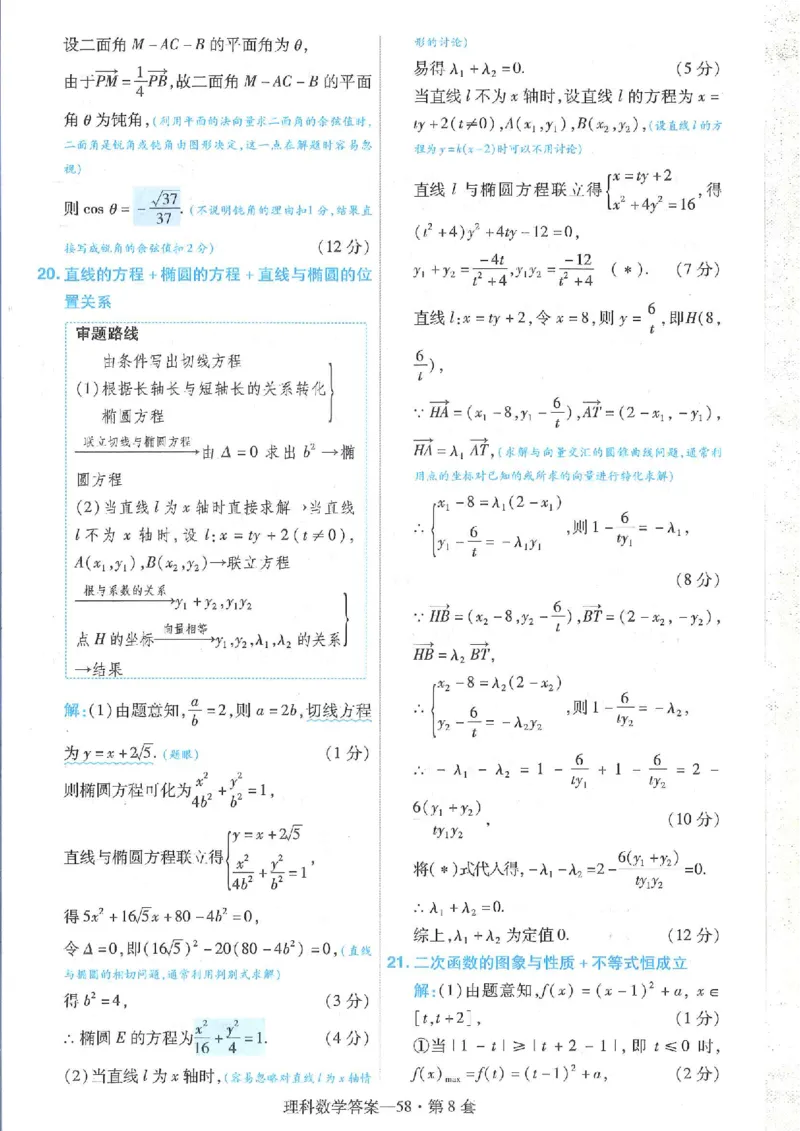 设二面角 M-AC-B 的平面角为 θ,
由于$\overrightarrow{PM}=\frac{1}{4}\overrightarrow{PB}$,故二面角 M-AC-B 的平面
角 θ 为钝角,(利用平面的法向量求二面角的余弦值时,
二面角是锐角或钝角由图形决定,这一点在解题时容易忽
视)
则 cos θ = $-\frac{\sqrt{37}}{37}$.(不说明钝角的理由扣1分,结果直
接写成锐角的余弦值扣2分) (12分)
20. 直线的方程+椭圆的方程+直线与椭圆的位
置关系
审题路线
由条件写出切线方程
(1)根据长轴长与短轴长的关系转化
椭圆方程
联立切线与椭圆方程→由 Δ=0 求出 b²→椭
圆方程
(2)当直线 l 为 x 轴时直接求解→当直线
l 不为 x 轴时,设 l:x=ty+2(t≠0),
A(x₁,y₁),B(x₂,y₂)→联立方程
根与系数的关系→y₁+y₂,y₁y₂
点 H 的坐标 向量相等→y₁,y₂,λ₁,λ₂ 的关系
→结果
解:(1)由题意知,$\frac{a}{b}$=2,则 a=2b,切线方程
为 y=x+2√5.(题眼) (1分)
则椭圆方程可化为$\frac{x^2}{4b^2}+\frac{y^2}{b^2}=1$,
直线与椭圆方程联立得$\begin{cases}y=x+2\sqrt{5}\\\frac{x^2}{4b^2}+\frac{y^2}{b^2}=1\end{cases}$,
得 5x²+16√5x+80-4b²=0,
令 Δ=0,即(16√5)²-20(80-4b²)=0,(直线
与椭圆的相切问题,通常利用判别式求解)
得 b²=4, (3分)
∴椭圆 E 的方程为$\frac{x^2}{16}+\frac{y^2}{4}=1$. (4分)
(2)当直线 l 为 x 轴时,(容易忽略对直线 l 为 x 轴情
形的讨论)
易得 λ₁+λ₂=0. (5分)
当直线 l 不为 x 轴时,设直线 l 的方程为 x=
ty+2(t≠0),A(x₁,y₁),B(x₂,y₂),(设直线 l 的方
程为 y=k(x-2)时可以不用讨论)
直线 l 与椭圆方程联立得$\begin{cases}x=ty+2\\x^2+4y^2=16\end{cases}$,得
(t²+4)y²+4ty-12=0,
y₁+y₂=$\frac{-4t}{t^2+4}$,y₁y₂=$\frac{-12}{t^2+4}$ (*). (7分)
直线 l:x=ty+2,令 x=8,则 y=$\frac{6}{t}$,即H(8,
$\frac{6}{t}$),
∵$\overrightarrow{HA}$=(x₁-8,y₁-$\frac{6}{t}$),$\overrightarrow{AT}$=(2-x₁,-y₁),
$\overrightarrow{HA}$=λ₁$\overrightarrow{AT}$,(求解与向量交汇的圆锥曲线问题,通常利
用点的坐标对已知的或所求的向量进行转化求解)
∴$\begin{cases}x_1-8=λ_1(2-x_1)\\y_1-\frac{6}{t}=-λ_1y_1\end{cases}$,则 1-$\frac{6}{ty_1}$=-λ₁,
(8分)
∵$\overrightarrow{HB}$=(x₂-8,y₂-$\frac{6}{t}$),$\overrightarrow{BT}$=(2-x₂,-y₂),
$\overrightarrow{HB}$=λ₂$\overrightarrow{BT}$,
∴$\begin{cases}x_2-8=λ_2(2-x_2)\\y_2-\frac{6}{t}=-λ_2y_2\end{cases}$,则 1-$\frac{6}{ty_2}$=-λ₂,
∴-λ₁-λ₂=1-$\frac{6}{ty_1}$+1-$\frac{6}{ty_2}$=2-
$\frac{6(y_1+y_2)}{ty_1y_2}$, (10分)
将(*)式代入得,-λ₁-λ₂=2-$\frac{6(y_1+y_2)}{ty_1y_2}$=0.
∴λ₁+λ₂=0.
综上,λ₁+λ₂ 为定值 0. (12分)
21. 二次函数的图象与性质+不等式恒成立
解:(1)由题意知,f(x)=(x-1)²+a,x∈
[t,t+2], (1分)
①当|1-t|≥|t+2-1|,即 t≤0 时,
f(x)max=f(t)=(t-1)²+a, (2分)
理科数学答案—58·第8套